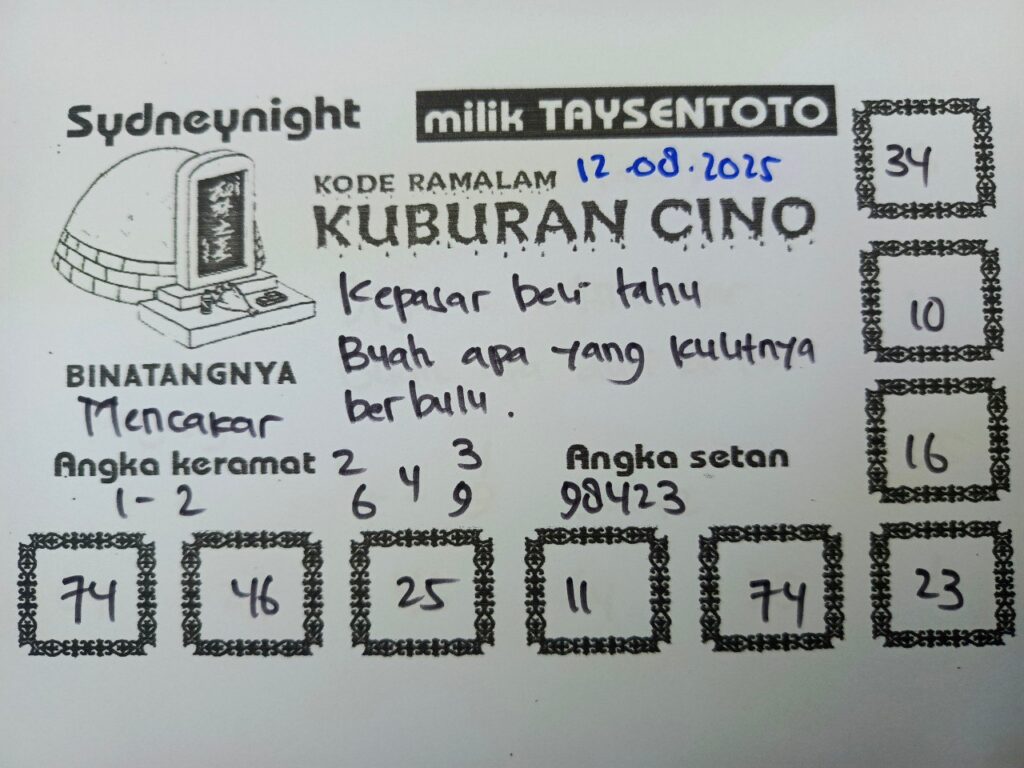 Sydneynight
milik TAYSENTOTO
KODE RAMALAM 12.08.2025
KUBURAN CINO
Kepasar beli tahu
Buah apa yang kulitnya
berbulu.
BINATANGNYA
Mencakar
Angka keramat
1-2
2 3
4
6 9
Angka setan
98423
34
10
16
74 46 25 11 74 23